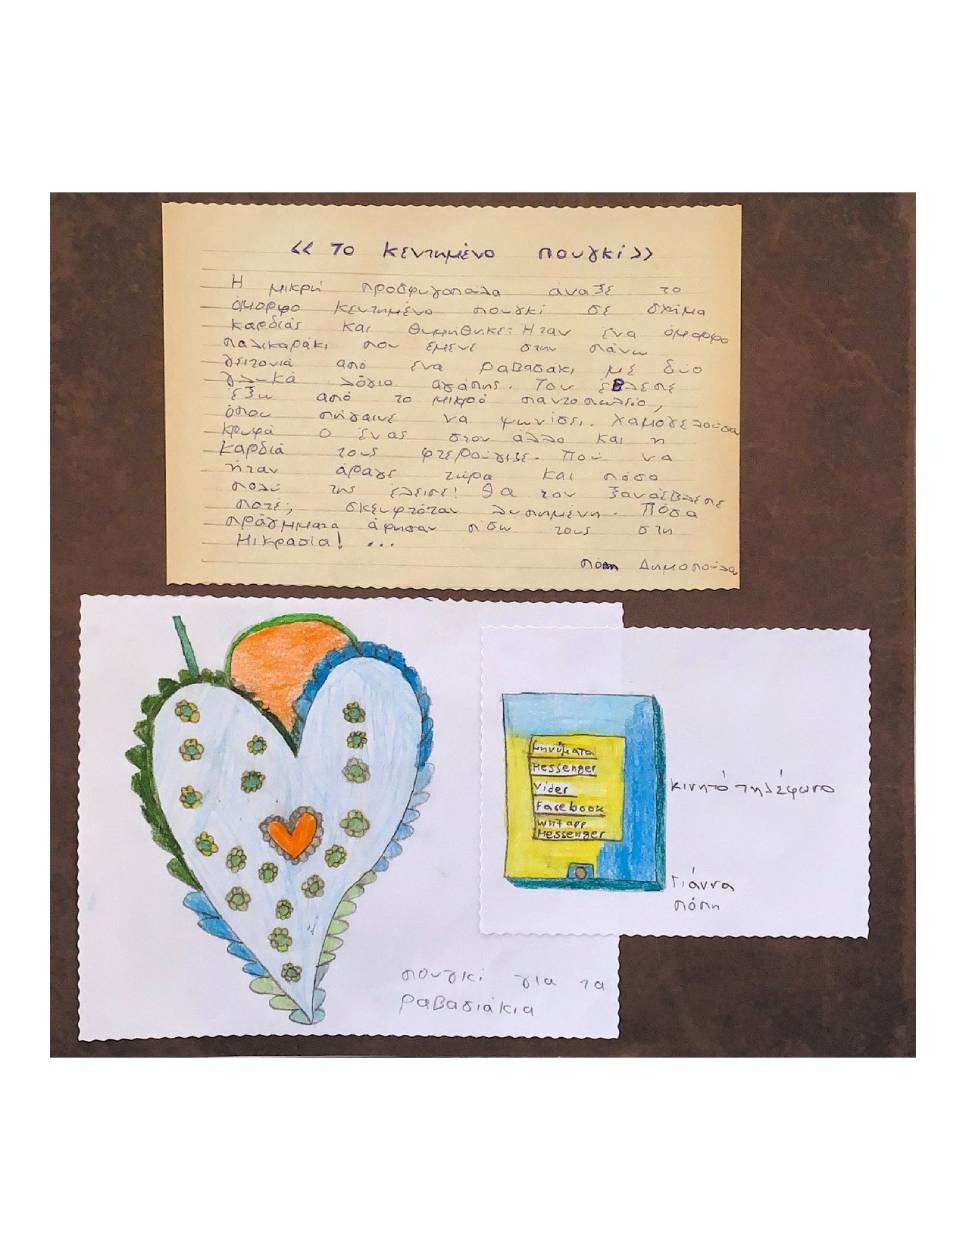 «Το κεντημένο πουγκί»
Η μικρή προσφυγοπούλα άνοιξε το
όμορφο κεντημένο πουγκί σε σχήμα
καρδιάς και θυμήθηκε: Ήταν ένα όμορφο
παλικαράκι που έμενε στην πάνω
γειτονιά από ένα ραβασάκι με δύο
γλυκά λόγια αγάπης. Τον έβλεπε
έξω από το μικρό παντοπωλείο,
όπου πήγαινε να ψωνίσει. Χαμογελούσαν
κρυφά ο ένας στον άλλο και η
καρδιά τους φτερούγιζε. Πού να
ήταν άραγε τώρα και πόσο
πολύ της έλειπε! Θα τον ξαναέβλεπε
ποτέ; σκεφτόταν λυπημένη. Πόσα
πράγματα άφησαν πίσω τους στη
Μικρασία! ...
Πόπη Δημοπούλου
μηνύματα
Messenger
Vider
Facebook
whtapp
Messenger
κινητό τηλέφωνο
Γιάννα
Πόπη
πουγκί για τα
ραβασάκια